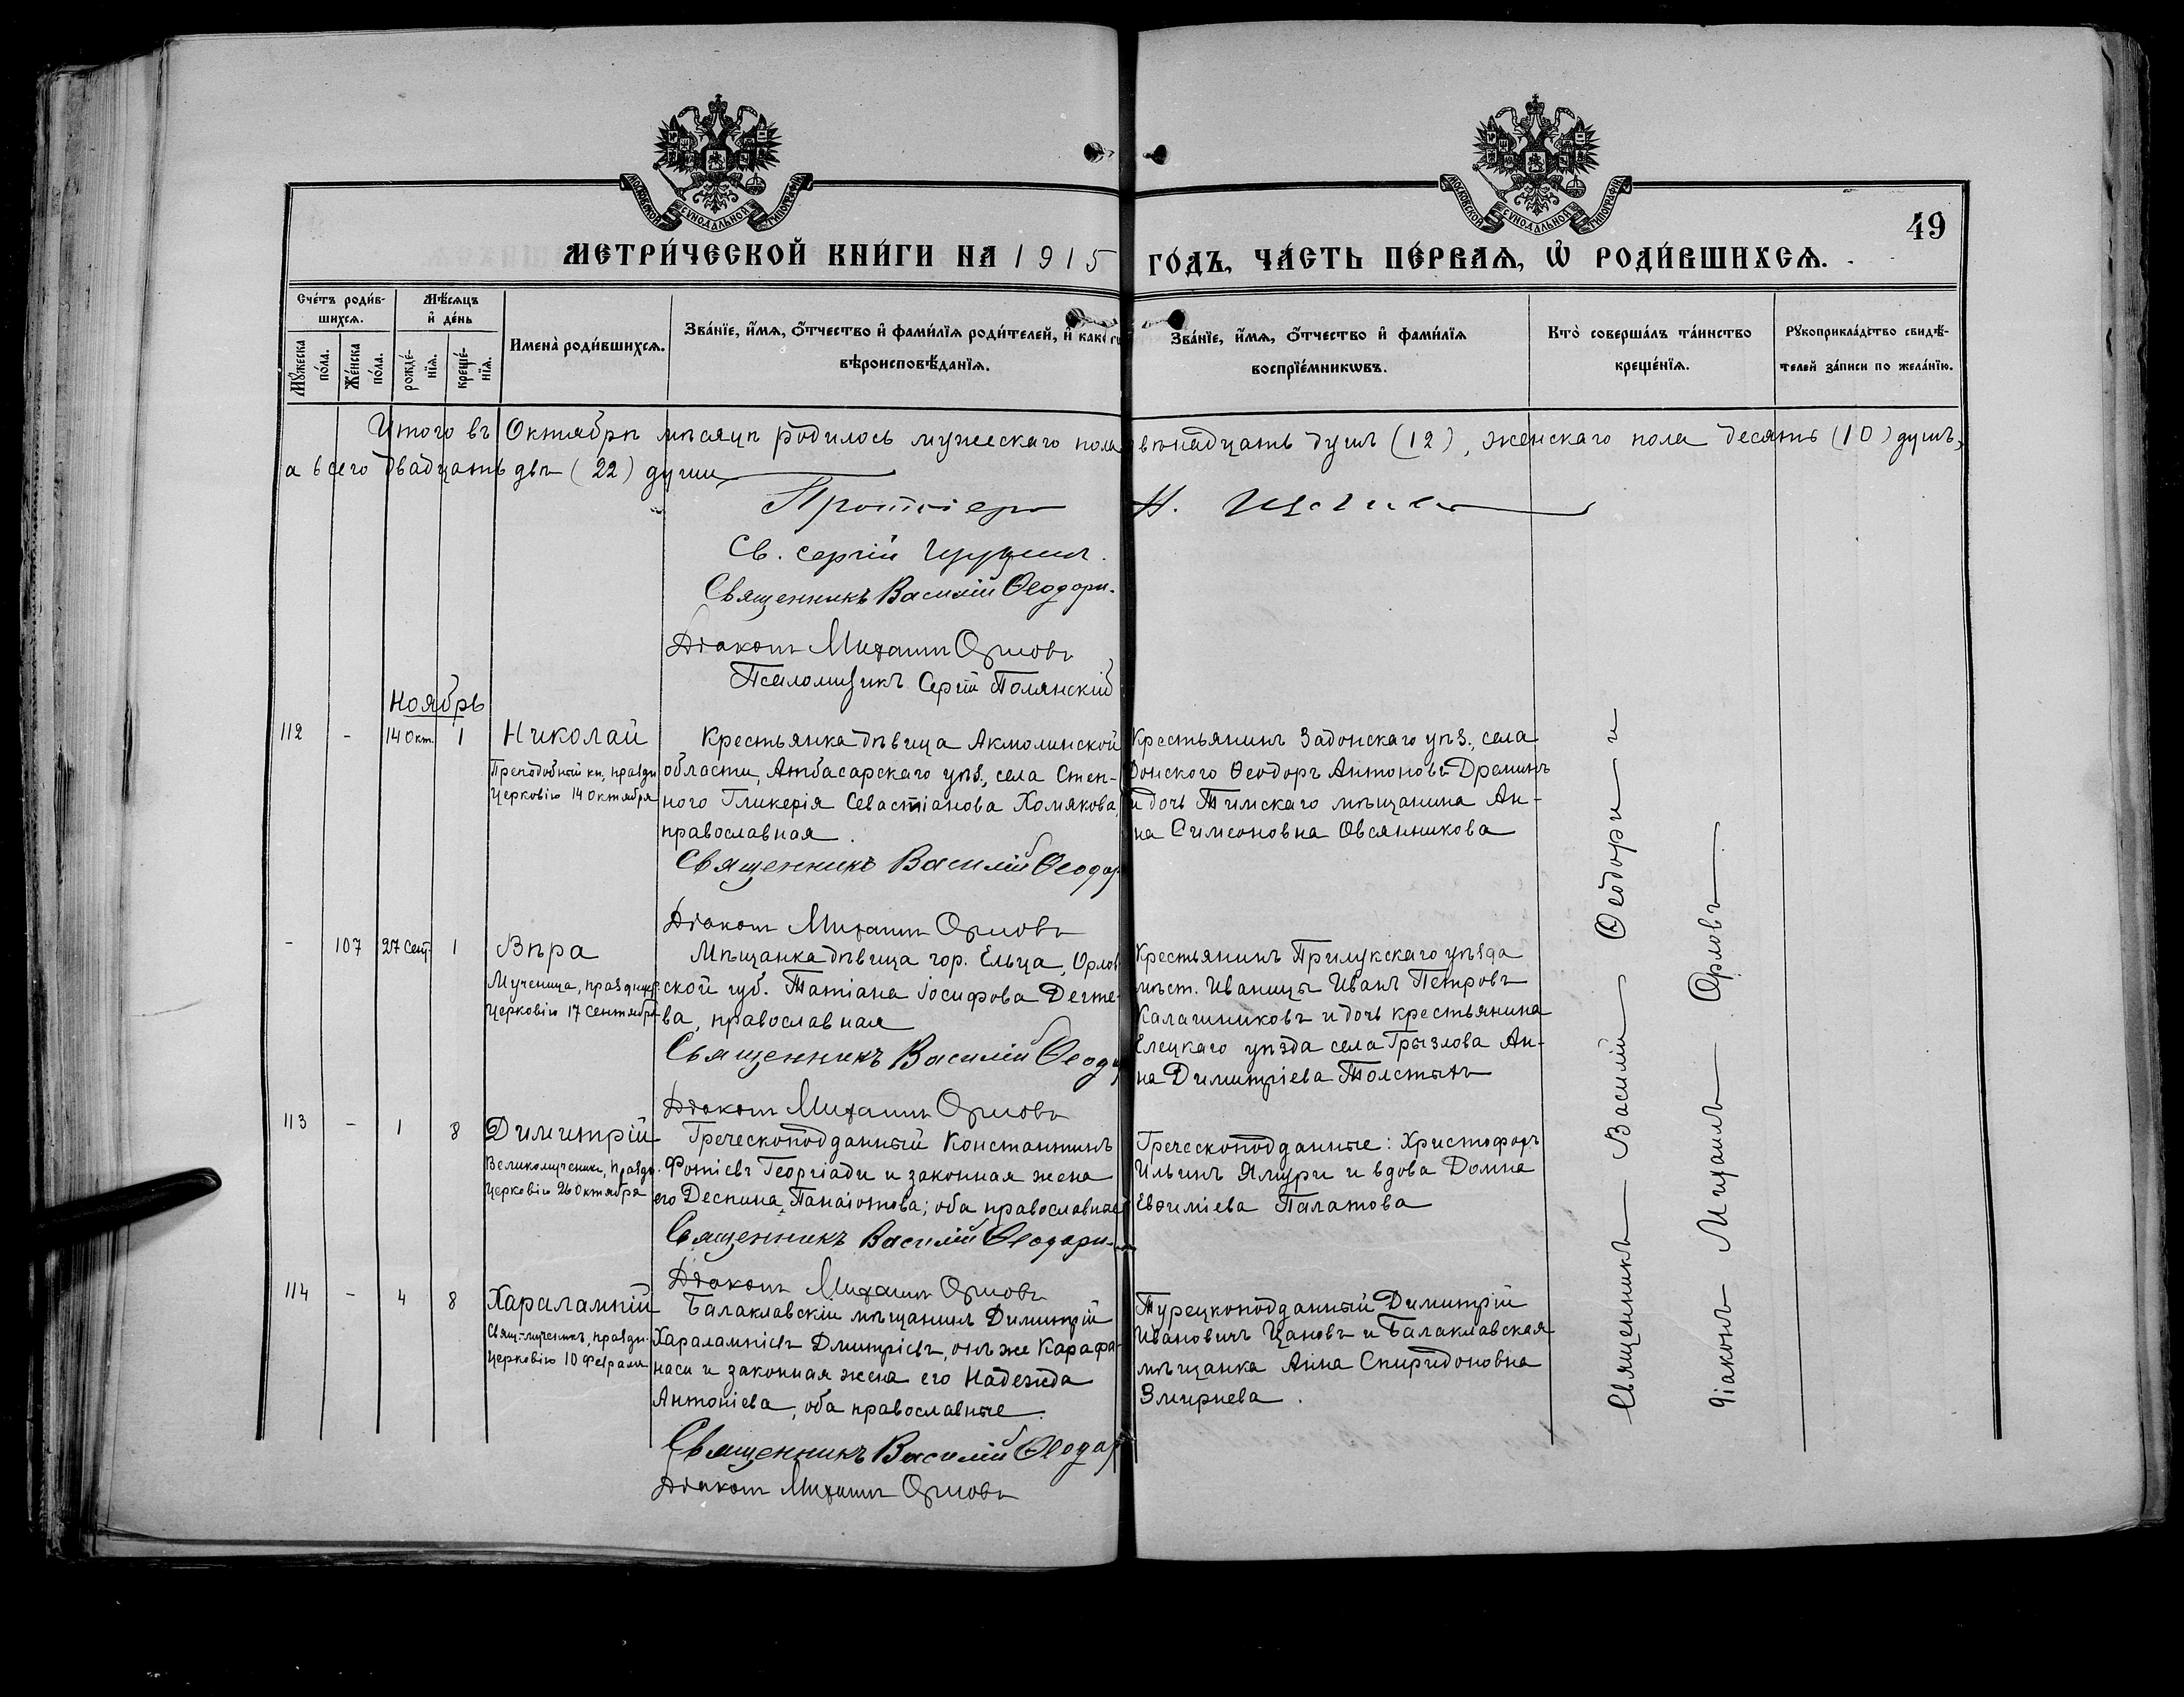 МОСКОВСКОЙ СУНОДАЛЬНОЙ ТИПОГРАФІИ
МОСКОВСКОЙ СУНОДАЛЬНОЙ ТИПОГРАФІИ
49
МЕТРИ́ЧЕСКОЙ КНИ́ГИ НА 1915 ГО́ДЪ, ЧА́СТЬ ПЕ́РВАѦ, Ѡ҆ РОДИ́ВШИХСѦ.
Сче́тъ роди́в-
шихсѧ.
Мꙋ́жеска по́ла.
Же́нска по́ла.
Мѣ́сѧцъ
и҆ де́нь
рожде́-нїѧ.
креще́-нїѧ.
Имена̀ роди́вшихсѧ.
Зва́нїе, и҆́мѧ, ѻ҆́тчество и҆ фами́лїѧ роди́телей, и҆ како́гѡ
вѣроисповѣ́данїѧ.
Зва́нїе, и҆́мѧ, ѻ҆́тчество и҆ фами́лїѧ
воспрїе́мникѡвъ.
Кто̀ соверша́лъ та́инство
креще́нїѧ.
Рꙋкоприкла́дство свидѣ́-
телей за́писи по жела́нїю.
Итого въ Октябрѣ мѣсяцѣ родилось мужескаго пола двѣнадцать душъ (12), женскаго пола десять (10) душъ,
а всего двадцать двѣ (22) души
Протоіерей Н.
Св. Сергій
Священникъ Василій Ѳеодори
Діаконъ Михаилъ Орловъ
Псаломщикъ Сергій Полянскій
Ноябрь
112 - 14 Окт. 1 Николай
Преподобный кн, праздн
Церковію 14 Октября
Крестьянка дѣвица Акмолинской
области, Атбасарскаго уѣз., села Степ-
ного Гликерія Севастіанова Хомякова,
православная.
Священникъ Василій Ѳеодор
Діаконъ Михаилъ Орловъ
Крестьянинъ Задонскаго уѣз., села
Донского Ѳеодоръ Антоновъ Дреминъ
и дочь Тимскаго мѣщанина Ан-
на Симеоновна Овсянникова
- 107 27 Сент. 1 Вѣра
Мученица, праздну
Церковію 17 Сентября
Мѣщанка дѣвица гор. Ельца, Орлов
ской губ. Татіана Іосифова Дегте-
ва, православная
Священникъ Василій Ѳеод
Діаконъ Михаилъ Орловъ
Крестьянинъ Прилукскаго уѣзда
мѣст. Иваницы Иванъ Петровъ
Калашниковъ и дочь крестьянина
Елецкаго уѣзда села Грызлова Ан-
на Димитріева Толстыхъ
113 - 1 8 Димитрій
Великомученикъ, праздн.
Церковію 26 Октября
Греческоподданный Константинъ
Фотіевъ Георгіади и законная жена
его Деспина Панаіотова; оба православные
Священникъ Василій Ѳеодори
Діаконъ Михаилъ Орловъ
Греческоподданные: Христофоръ
Ильинъ Ямури и вдова Домна
Евѳиміева Палатова
114 - 4 8 Харалампій
Свящ-мученикъ, праздн.
Церковію 10 Февраля
Балаклавскій мѣщанинъ Димитрій
Харалампіевъ Дмитріевъ, онъ же Карафа-
наси и законная жена его Надежда
Антоніева, оба православные.
Священникъ Василій Ѳеодор
Діаконъ Михаилъ Орловъ
Турецкоподданный Димитрій
Ивановичъ Цановъ и Балаклавская
мѣщанка Анна Спиридоновна
Змирнева.
Священникъ Василій Ѳеодори
Діаконъ Михаилъ Орловъ